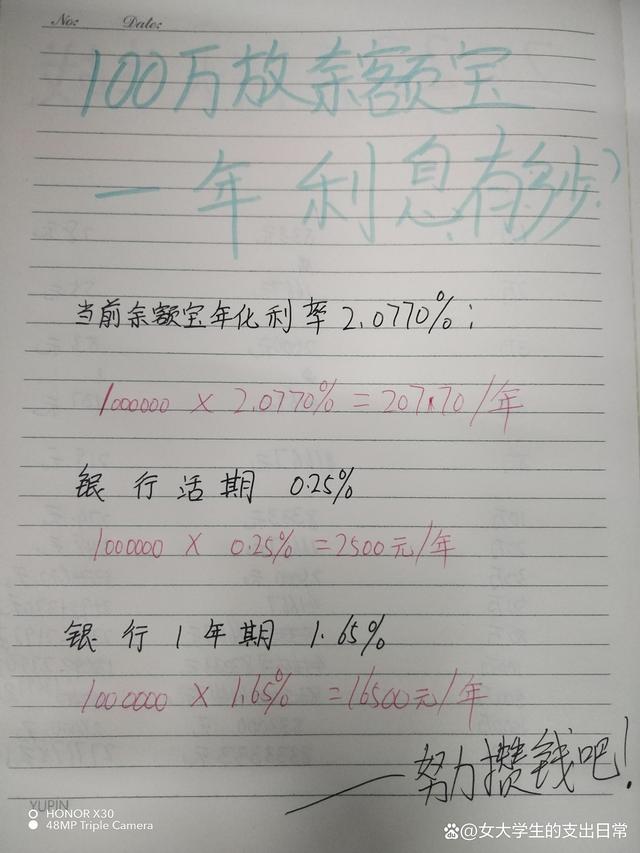 No: Date:
100万放余额宝
一年利息有多少?
当前余额宝年化利率 2.0770%;
1000000 × 2.0770% = 20770/年
银行活期 0.25%
1000000 × 0.25% = 2500元/年
银行1年期 1.65%
1000000 × 1.65% = 16500元/年
——努力攒钱吧!
YUPIN
HONOR X30
48MP Triple Camera
女大学生的支出日常